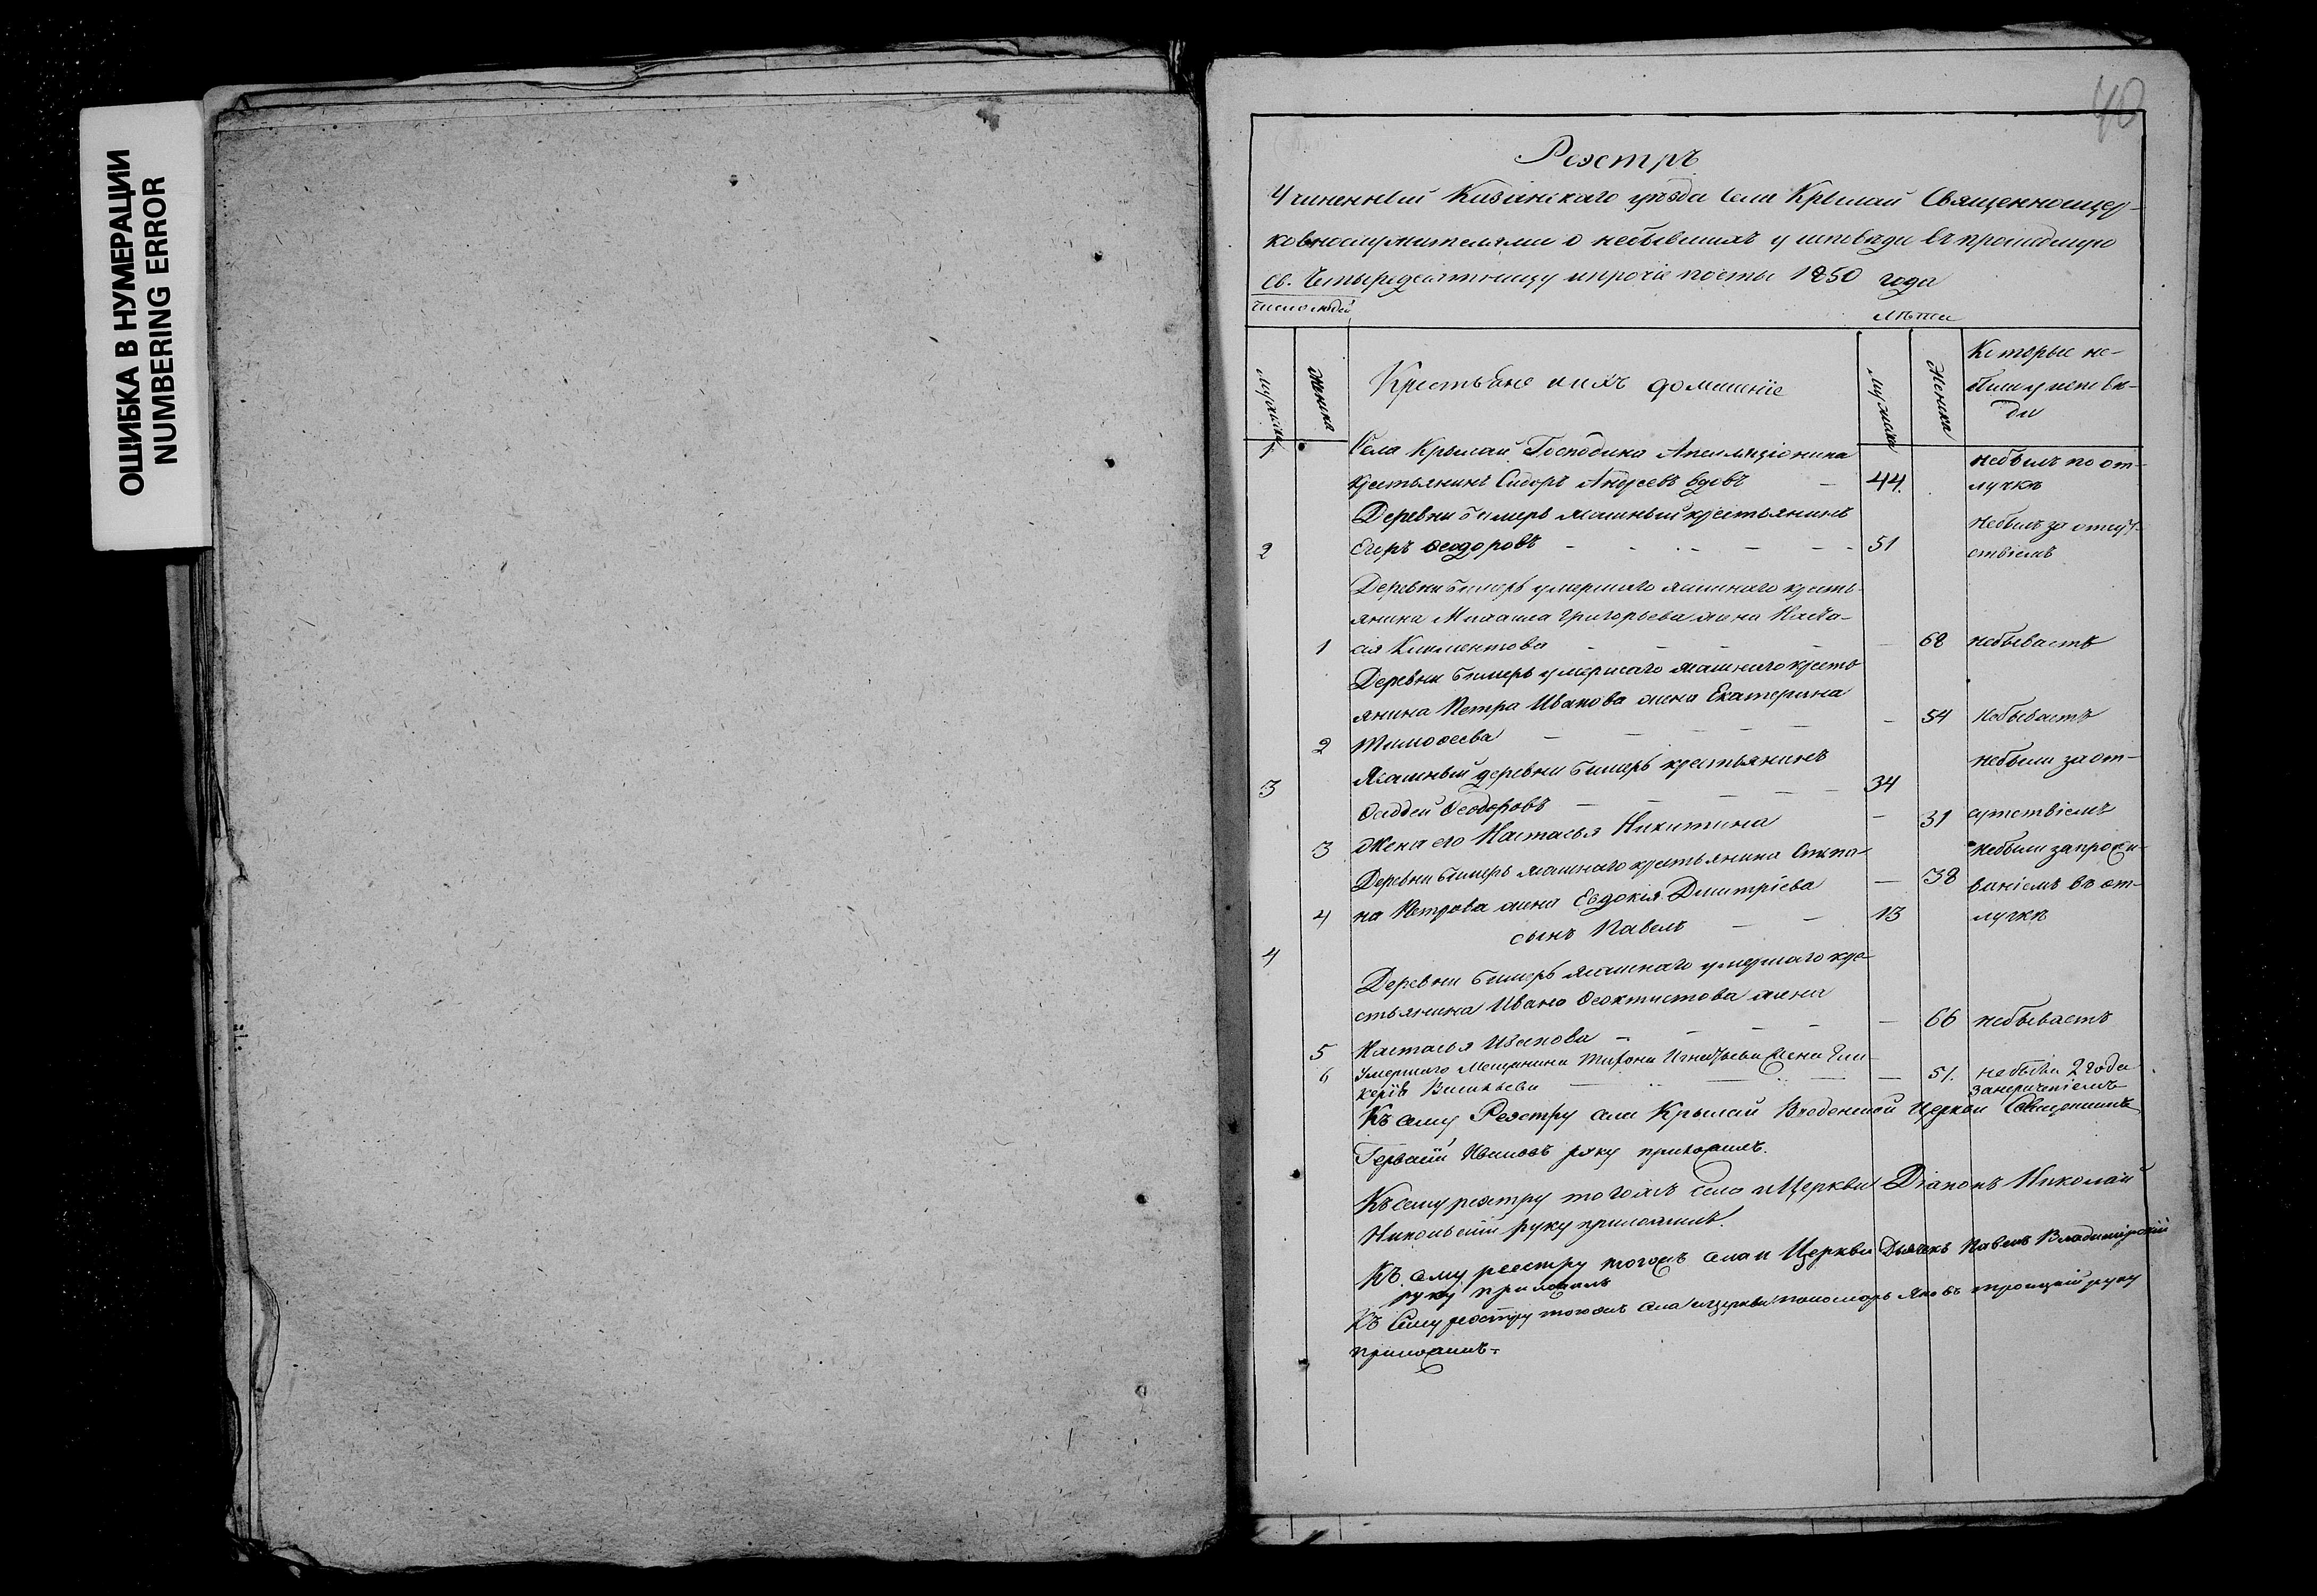 ОШИБКА В НУМЕРАЦИИ
NUMBERING ERROR
40
Реэстръ
Учиненный Казанскаго уѣзда села Крылай Священноцер-
ковнослужителями о небывшихъ у исповѣди въ прошедшую
св. Четыредесятницу и прочіе посты 1850 года
Число людей
Лѣта
Мужска
Женска
Крестьяне и ихъ домашніе
Мужска
Женска
Которые не-
были у исповѣ-
ди
1 Села Крылай Господина Апелляціонина
небылъ по от-
крестьянинъ Сидоръ Андреевъ вдовъ — 44.
лучкѣ
Деревни Бимерь ясашный крестьянинъ
небылъ за отсут-
2 Егоръ Ѳеодоровъ — 51
ствіемъ
Деревни Бимерь умершаго ясашнаго кресть-
янина Михаила Григорьева жена Наста-
1 сія Климентова — 68 небываетъ
Деревни Бимерь умершаго ясашнаго кресть
янина Петра Иванова жена Екатерина
2 Тимоѳеева — 54 небываетъ
Ясашный деревни Бимерь крестьянинъ
небыли за от-
3 Ѳаддей Ѳеодоровъ — 34
3 Жена его Настасья Никитина — 31 сутствіемъ
Деревни Бимерь ясашнаго крестьянина Степа-
небыли за прожи-
4 на Петрова жена Евдокія Дмитріева — 38 ваніемъ въ от-
4 сынъ Павелъ — 13 лучкѣ
Деревни Бимерь ясашнаго умершаго кре-
стьянина Ивана Ѳеоктистова жена
5 Настасья Иванова — 66 небываетъ
6 Умершаго Мещанина Тихона Игнатьева жена Гли-
керія Васильева — 51. небыла 2 года
Къ сему Реэстру села Крылай церкви Священникъ
Гервасій Ивановъ руку приложилъ.
Къ сему реэстру тогожъ села и Церкви Діаконъ Николай
Никольскій руку приложилъ.
Къ сему реестру тогожъ села и Церкви Дьячекъ Павелъ Владимірскій
руку приложилъ
Къ сему реэстру тогожъ села и церкви пономарь Яковъ Троицкій руку
приложилъ